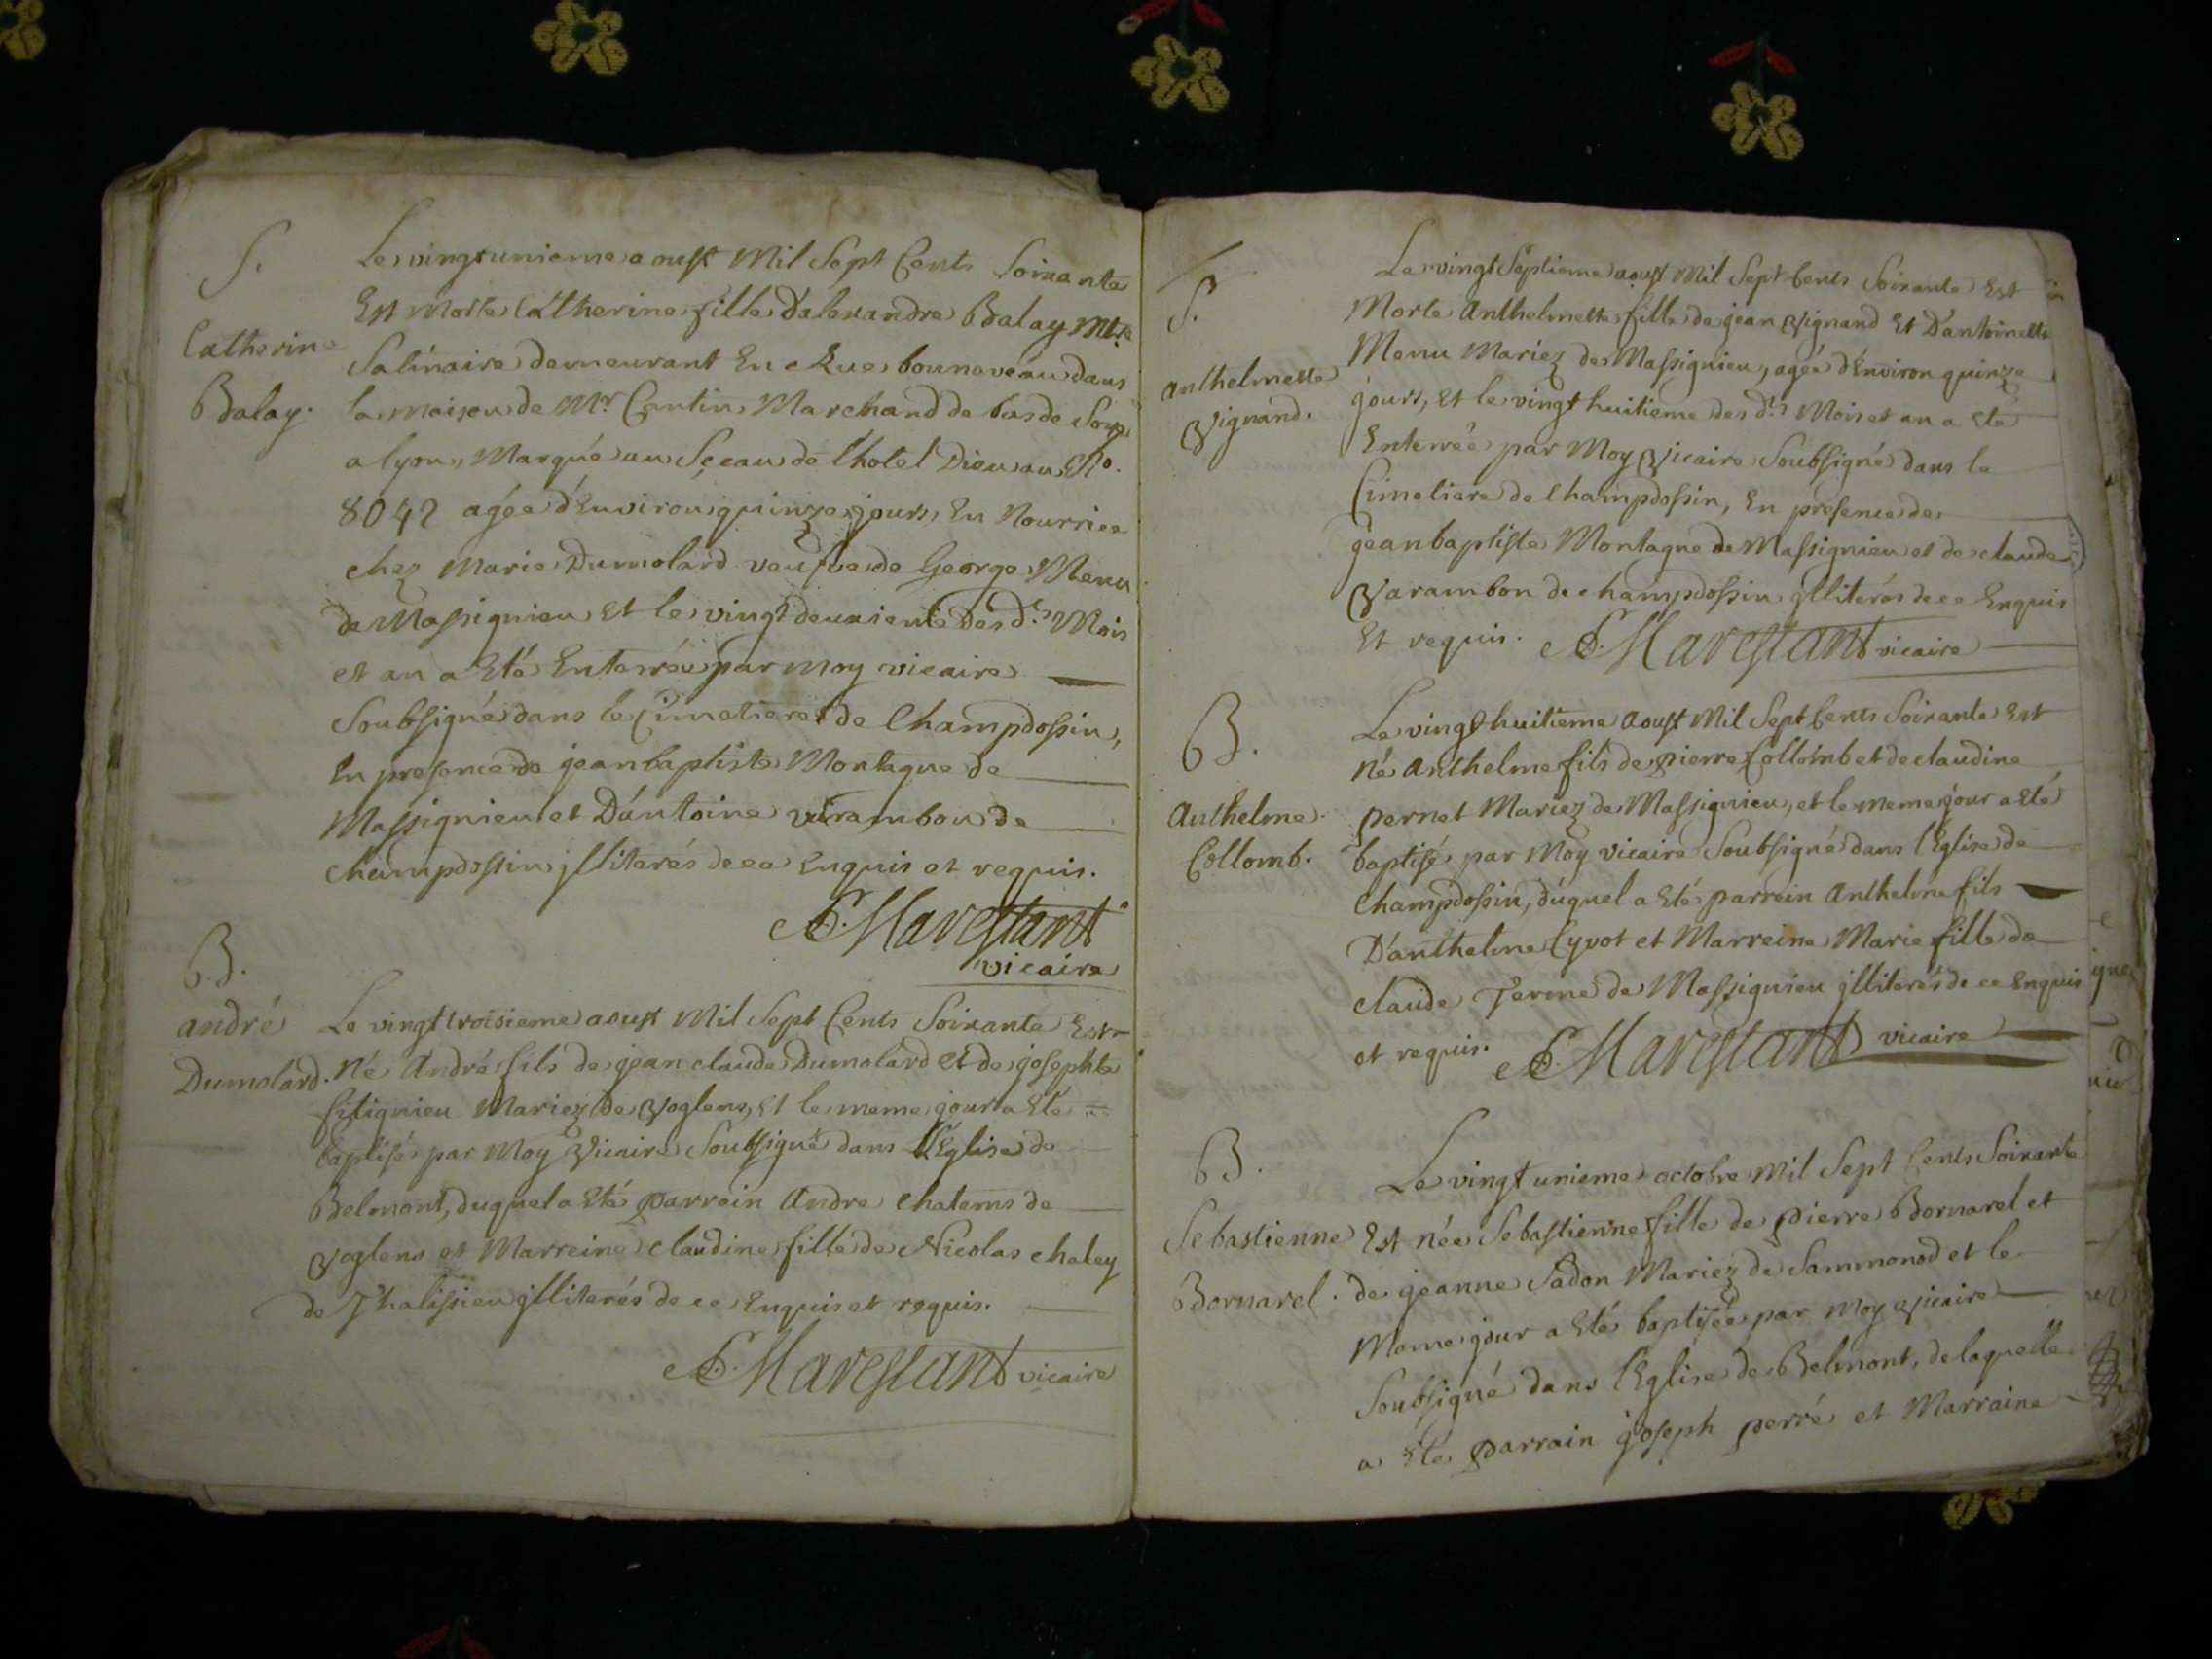 S.
Catherine
Balay.
Le vingt unieme aoust Mil Sept Cents Soixante
Est Morte Catherine fille D'alexandre Balay Mtre
Satinaire demeurant En Rue bouneveau dans
la maison de Mr. Cantin Marchand de bas de Soye
a lyon, Marqué au Sceau de l'hotel Dieu au No.
8042 agée d'Environ quinze jours, En Nourrice
chez Marie Dumolard veufve de George Menu
de Massignieu Et le vingt deuxieme des d.ts Mois
et an a Eté Enterrée par Moy vicaire
Soubsigné dans le Cimetiere de Champdossin,
En presence de jean baptiste Montagne de
Massignieu et D'antoine varambon de
champdossin jlliterés de ce Enquis et requis.
Marestant
vicaire
B.
andré
Dumolard.
Le vingt troisieme aoust Mil Sept Cents Soixante Est
Né André fils de jean claude Dumolard et de josephte
fitignieu Mariez de Voglens, Et le meme jour a Eté
baptisé par Moy Vicaire Soubsigné dans l'Eglise de
Belmont, duquel a Eté parrain André chatems de
Voglens et Marreine claudine fille de Nicolas chaley
de Thalissieu jlliterés de ce Enquis et requis.
Marestant vicaire
S.
anthelmette
Vignand.
Le vingt Septieme aoust Mil Sept Cents Soixante Est
Morte Anthelmette fille de jean Vignand Et D'antoinette
Menu Mariez de Massignieu, agée d'Environ quinze
jours, Et le vingt huitieme des d.ts Mois et an a Eté
Enterrée par Moy Vicaire Soubsigné dans le
Cimetiere de Champdossin, En presence de
jean baptiste Montagne de Massignieu et de claude
Varambon de champdossin jlliterés de ce Enquis
Et requis. Marestant vicaire
B.
Anthelme
Collomb.
Le vingt huitieme aoust Mil Sept Cents Soixante Est
Né Anthelme fils de pierre Collomb et de claudine
pernet Mariez de Massignieu, et le meme jour a Eté
baptisé par Moy vicaire Soubsigné dans l'Eglise de
Champdossin, duquel a Eté parrain Anthelme fils
D'anthelme Cyvot et Marreine Marie fille de
claude Ferme de Massignieu jlliterés de ce Enquis
et requis. Marestant vicaire
B.
Sebastienne
Bornarel.
Le vingt unieme octobre Mil Sept Cents Soixante
Est née Sebastienne fille de pierre Bornarel et
de jeanne Sadon Mariez de Sammonod et le
Meme jour a Eté baptisée par Moy Vicaire
Soubsigné dans l'Eglise de Belmont, de laquelle
a Eté parrain joseph perré et Marraine